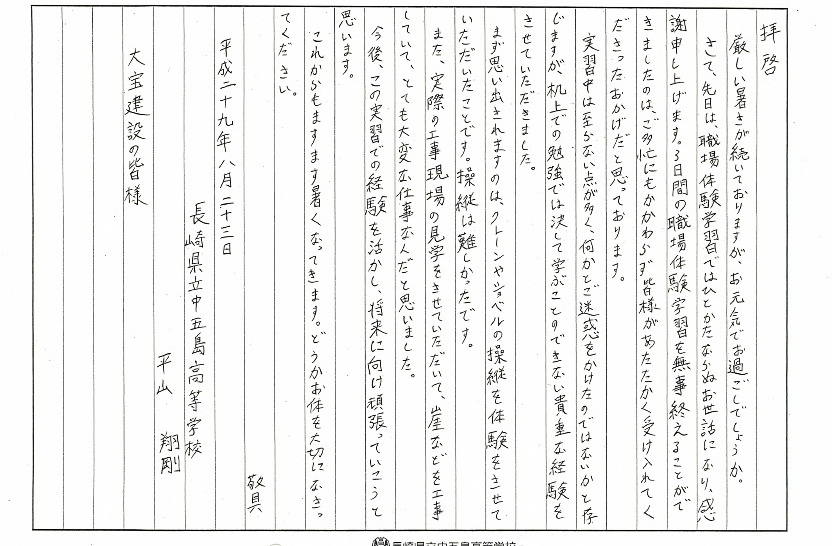 拝啓
厳しい暑さが続いておりますが、お元気でお過ごしでしょうか。
さて、先日は、職場体験学習ではひとかたならぬお世話になり、感
謝申し上げます。3日間の職場体験学習を無事終えることがで
きましたのは、ご多忙にもかかわらず皆様があたたかく受け入れてく
ださったおかげだと思っております。
実習中は至らない点が多く、何かとご迷惑をかけたのではないかと存
じますが、机上での勉強では決して学がことのできない貴重な経験を
させていただきました。
まず思い出されますのは、クレーンやショベルの操縦を体験をさせて
いただいたことです。操縦は難しかったです。
また、実際の工事現場の見学をさせていただいて、崖などを工事
していて、とても大変な仕事なんだと思いました。
今後、この実習での経験を活かし、将来に向け頑張っていこうと
思います。
これからもますます暑くなってきます。どうかお体を大切になさっ
てください。
敬具
平成二十九年八月二十三日
長崎県立中五島高等学校
平山 翔剛
大宝建設の皆様
長崎県立中五島高等学校